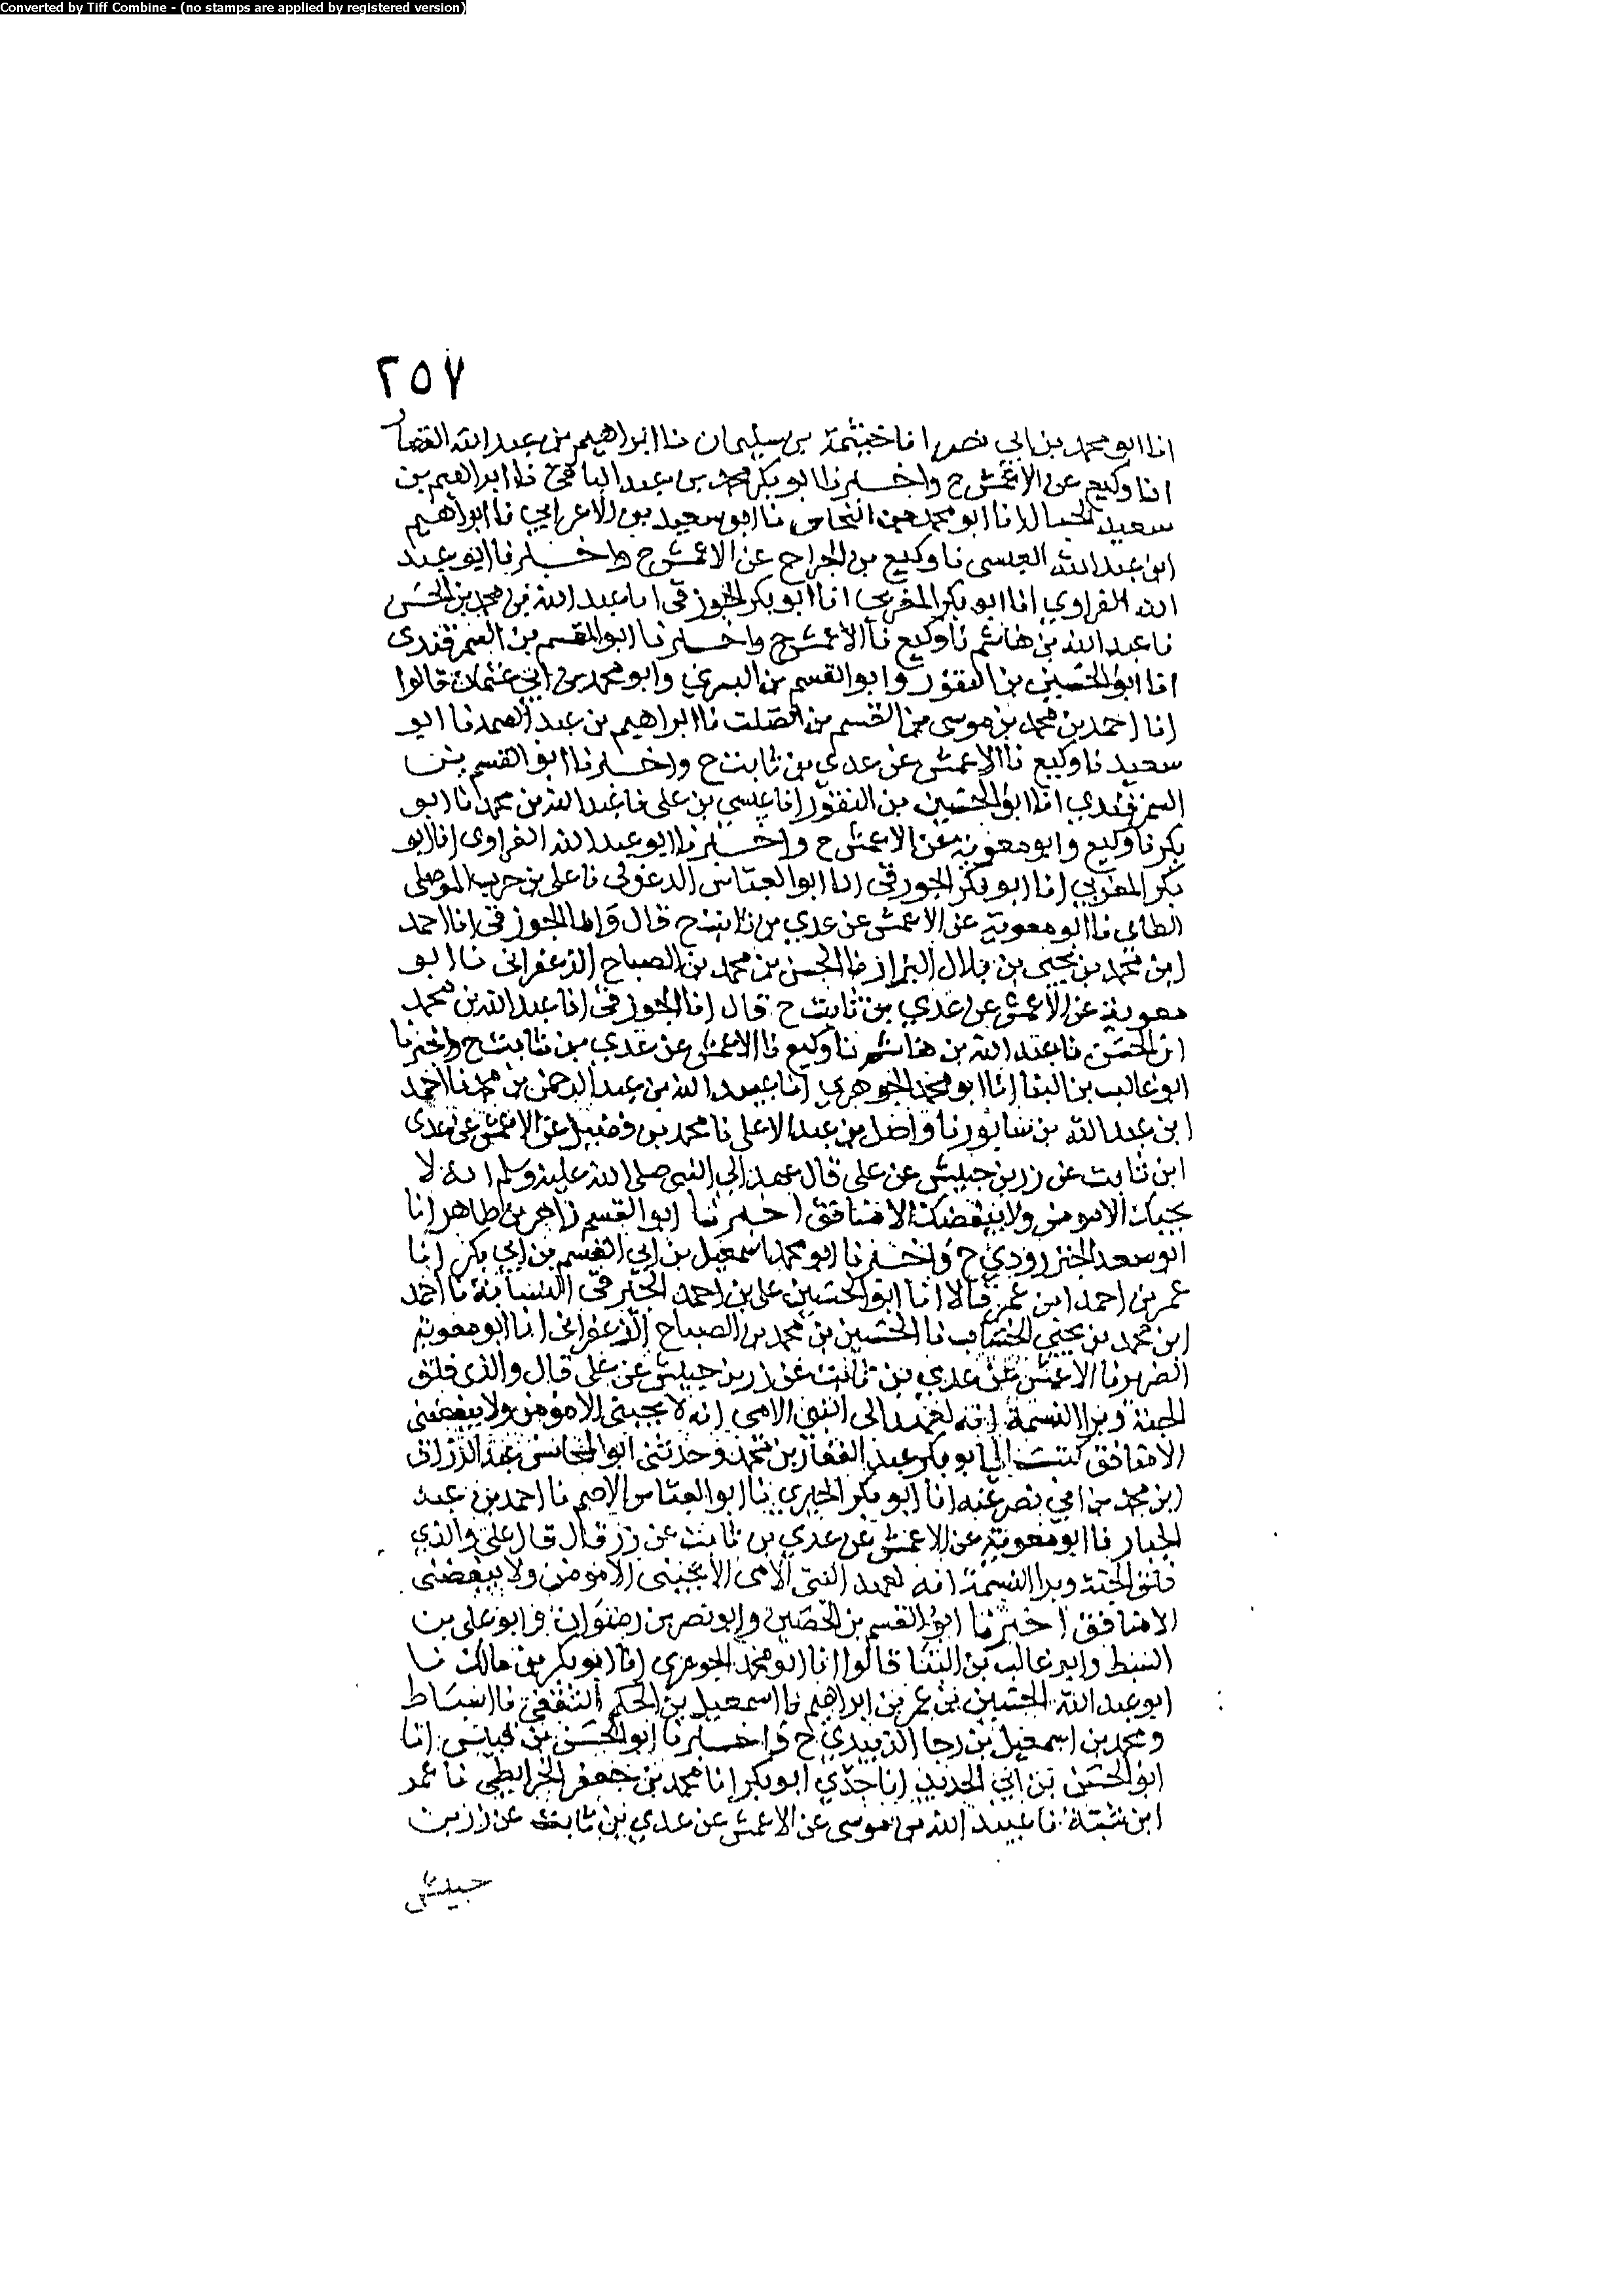 Converted by Tiff Combine - (no stamps are applied by registered version)
٢٥٧
انا ابو محمد بن ابي نصر انا خيثمة بن سليمان نا ابراهيم بن عبد الله القصار
انا وكيع عن الاعمش ح واخبرنا ابو بكر محمد بن عبد الباقي نا ابراهيم بن
سعيد الحبال انا ابو محمد بن النحاس نا ابو سعيد بن الاعرابي نا ابراهيم
ابن عبد الله العبسى نا وكيع بن الجراح عن الاعمش ح واخبرنا ابو عبد
الله الفراوي انا ابو بكر المغربي انا ابو بكر الجوزقى انا عبد الله بن محمد بن الحسن
نا عبد الله بن هاشم نا وكيع نا الاعمش ح واخبرنا ابو القسم بن السمرقندى
انا ابو الحسين بن النقور وابو القسم بن البسري وابو محمد بن ابي عثمان قالوا
انا احمد بن محمد بن موسى بن القسم بن الصلت نا ابراهيم بن عبد الصمد نا ابو
سعيد نا وكيع نا الاعمش عن عدي بن ثابت ح واخبرنا ابو القسم بن
السمرقندي انا ابو الحسين بن النقور انا عيسي بن على نا عبد الله بن محمد نا ابو
بكر نا وكيع وابو معوية عن الاعمش ح واخبرنا ابو عبد الله الفراوى انا ابو
بكر المغربي انا ابو بكر الجوزقى انا ابو العباس الدغولى نا على بن حرب الموصلى
الطاى نا ابو معوية عن الاعمش عن عدي بن ثابت ح قال وانا الجوزقى انا احمد
ابن محمد بن يحيى بن بلال البزاز نا الحسن بن محمد بن الصباح الزعفرانى نا ابو
معوية عن الاعمش عن عدي بن ثابت ح قال انا الجوزقى انا عبد الله بن محمد
ابن الحسن نا عبد الله بن هاشم نا وكيع نا الاعمش عن عدي بن ثابت ح واخبرنا
ابو غالب بن البنا انا ابو محمد الجوهري انا عبيد الله بن عبد الرحمن بن محمد نا احمد
ابن عبد الله بن سابور نا واصل بن عبد الاعلى نا محمد بن فضيل عن الاعمش عن عدى
ابن ثابت عن زر بن حبيش عن على قال عهد الي النبى صلى الله عليه وسلم انه لا
يحبك الا مومن ولا يبغضك الا منافق اخبرنا ابو القسم زاهر بن طاهر انا
ابو سعد الجنزرودي ح واخبرنا ابو محمد اسمعيل بن ابي القسم بن ابي بكر انا
عمر بن احمد ابن عمر قالا انا ابو الحسين على بن احمد نا احمد
ابن محمد بن يحيى الخشاب نا الحسين بن محمد بن الصباح الزعفرانى انا ابو معوية
الضرير نا الاعمش عن عدي بن ثابت عن زر بن حبيش عن على قال والذى فلق
الحبة وبرا النسمة انه لعهد الى النبى الامى انه لا يحبنى الا مومن ولا يبغضنى
الا منافق كتب الي ابو بكر عبد الغفار بن محمد وحدثنى ابو المحاسن عبد الرزاق
ابن محمد بن ابي نصر عنه انا ابو بكر الحيري نا ابو العباس الاصم نا احمد بن عبد
الجبار نا ابو معوية عن الاعمش عن عدي بن ثابت عن زر قال قال على والذي
فلق الحبة وبرا النسمة انه لعهد النبى الامى الا يحبنى الا مومن ولا يبغضنى
الا منافق اخبرنا ابو القسم بن الحصين وابو نصر بن رضوان وابو على بن
السبط وابو غالب بن البنا قالوا انا ابو محمد الجوهرى انا ابو بكر بن مالك نا
ابو عبد الله الحسين بن عمر بن ابراهيم نا اسمعيل بن الحكم الثقفى نا اسباط
ومحمد بن اسمعيل بن رجا الزبيدي ح واخبرنا ابو الحسن بن قبيس انا
ابو الحسن بن ابي الحديد انا جدي ابو بكر انا محمد بن جعفر الخرايطى نا عمر
ابن شبة نا عبيد الله بن موسى عن الاعمش عن عدي بن ثابت عن زر بن
حبيش